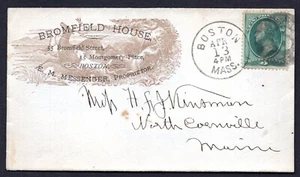 BROMFIELD HOUSE,
55 Bromfield Street,
15 Montgomery Place,
BOSTON.
E. M. MESSENGER, PROPRIETOR.
BOSTON
APR
13
4PM
MASS.
Miss H. G. J. Kinsman
North Cornville
Maine